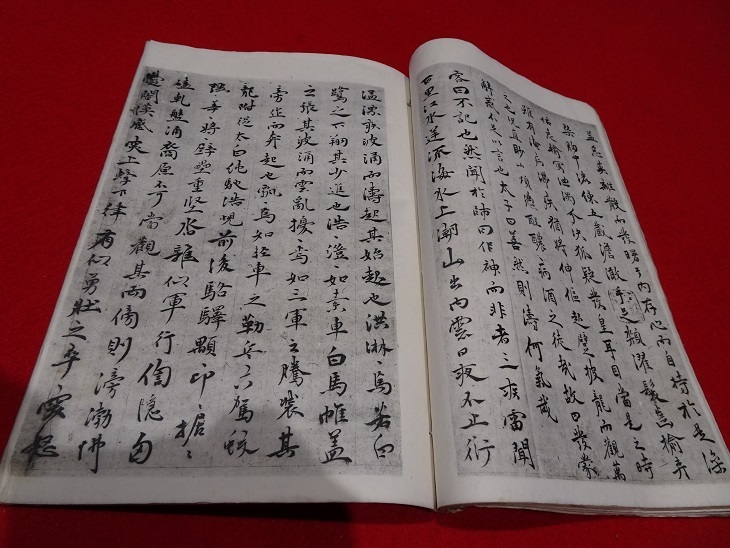 忽莫離散而發曙兮內存心而自持於是澡
槩胸中洒練五藏澹澉手足頮濯髮齒揄弃
恬怠輸寫淟濁分決狐疑發皇耳目當是之時
雖有淹病滯疾猶將伸傴起躄發聾而觀望
之也况直眇小煩懣酲醲病酒之徒哉故曰發蒙
解惑不足以言也太子曰善然則濤何氣哉
客曰不記也然聞於師曰似神而非者三疾雷聞
百里江水逆流海水上潮山出內雲日夜不止衍
溢漂疾波涌而濤起其始起也洪淋〻焉若白
鷺之下翔其少進也浩〻溰〻如素車白馬帷蓋
之張其波涌而雲亂擾〻焉如三軍之騰裝其
旁作而奔起也飄〻焉如輕車之勒兵六駕蛟
龍附從太白純馳浩蜺前後駱驛顒卬〻椐〻
强〻莘〻將〻壁壘重堅沓雜似軍行訇隱匈
磕軋盤涌裔原不可當觀其兩傍則滂渤怫
鬱闇漠感突上擊下律有似勇壯之卒突怒